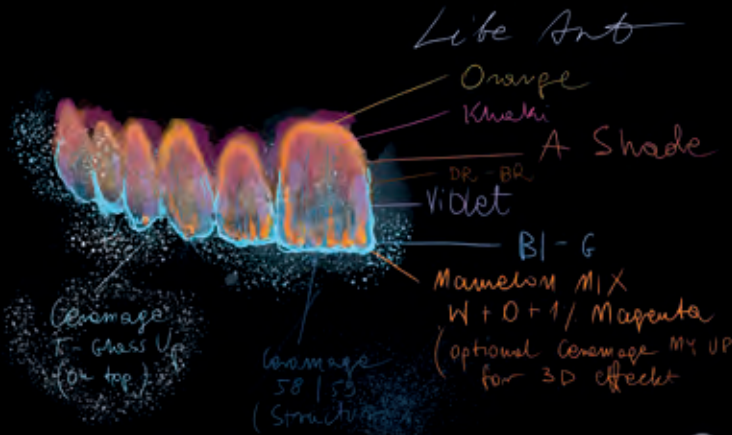 Life Ant
Orange
Khaki
A Shade
DR - BR
Violet
Bl - G
Mamelon Mix
W + O + 1% Magenta
(optional Ceramage MY UP
for 3D effekt
Ceramage
T-Glass Up
(on top)
Ceramage
58 / 59
(Structure